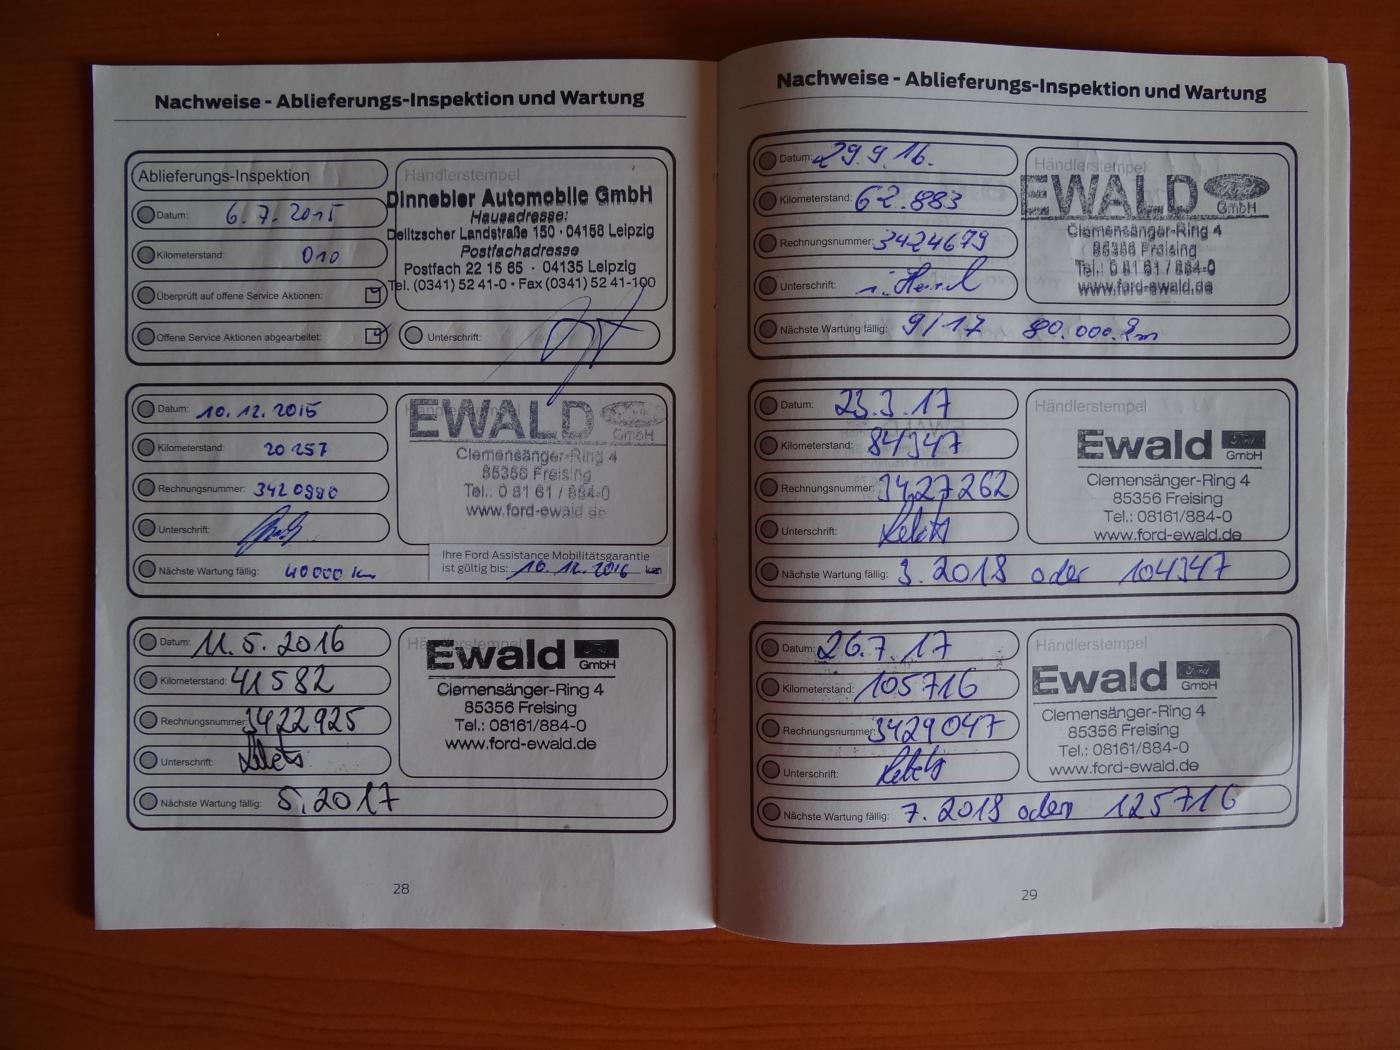 Nachweise - Ablieferungs-Inspektion und Wartung
Ablieferungs-Inspektion
Datum: 6.7.2015
Kilometerstand: 010
Überprüft auf offene Service Aktionen:
Offene Service Aktionen abgearbeitet:
Händlerstempel
Dinnebier Automobile GmbH
Hausadresse:
Delitzscher Landstraße 150 · 04158 Leipzig
Postfachadresse
Postfach 22 15 65 · 04135 Leipzig
Tel. (0341) 52 41-0 · Fax (0341) 52 41-100
Unterschrift:
Datum: 10.12.2015
Kilometerstand: 20 257
Rechnungsnummer: 3420980
Unterschrift:
Nächste Wartung fällig: 40000 km
Händlerstempel
EWALD
GmbH
Clemensänger-Ring 4
85356 Freising
Tel.: 0 81 61 / 884-0
www.ford-ewald.de
Ihre Ford Assistance Mobilitätsgarantie
ist gültig bis: 10.12.2016
Datum: 11.5.2016
Kilometerstand: 41582
Rechnungsnummer: 3422925
Unterschrift:
Nächste Wartung fällig: 5.2017
Händlerstempel
Ewald Ford
GmbH
Clemensänger-Ring 4
85356 Freising
Tel.: 08161/884-0
www.ford-ewald.de
28
Nachweise - Ablieferungs-Inspektion und Wartung
Datum: 29.9.16.
Kilometerstand: 62.883
Rechnungsnummer: 3424679
Unterschrift:
Nächste Wartung fällig: 9/17 80.000 km
Händlerstempel
EWALD Ford
GmbH
Clemensänger-Ring 4
85356 Freising
Tel.: 0 81 61 / 884-0
www.ford-ewald.de
Datum: 23.3.17
Kilometerstand: 84347
Rechnungsnummer: 3427262
Unterschrift:
Nächste Wartung fällig: 3.2018 oder 104347
Händlerstempel
Ewald Ford
GmbH
Clemensänger-Ring 4
85356 Freising
Tel.: 08161/884-0
www.ford-ewald.de
Datum: 26.7.17
Kilometerstand: 105716
Rechnungsnummer: 3429047
Unterschrift:
Nächste Wartung fällig: 7.2018 oder 125716
Händlerstempel
Ewald Ford
GmbH
Clemensänger-Ring 4
85356 Freising
Tel.: 08161/884-0
www.ford-ewald.de
29